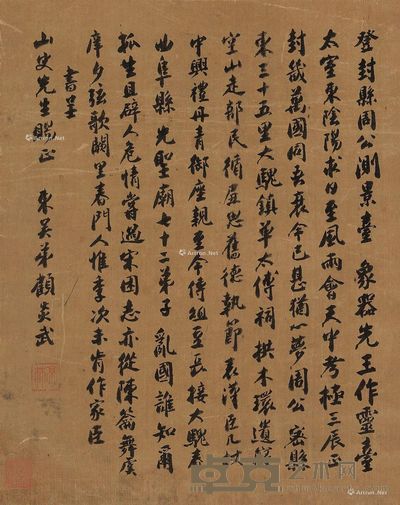 登封縣周公測景臺 象器先王作靈臺
太室東陰陽求日至風雨會天中考極三辰正
封畿萬國同吾衰今已甚猶心夢周公 密縣
東三十五里大騩鎮卓太傅祠 拱木環遺寢
空山走部民循良思舊德執節表淳臣几杖
中興禮丹青御座親至今傳俎豆長接大騩春
曲阜縣先聖廟七十二弟子 亂國誰知爾
孤生且辟人危情嘗過宋困志亦從陳籥舞虞
庠夕弦歌闕里春門人惟季次未肯作家臣
書呈
山史先生賜正 東吳弟顧炎武